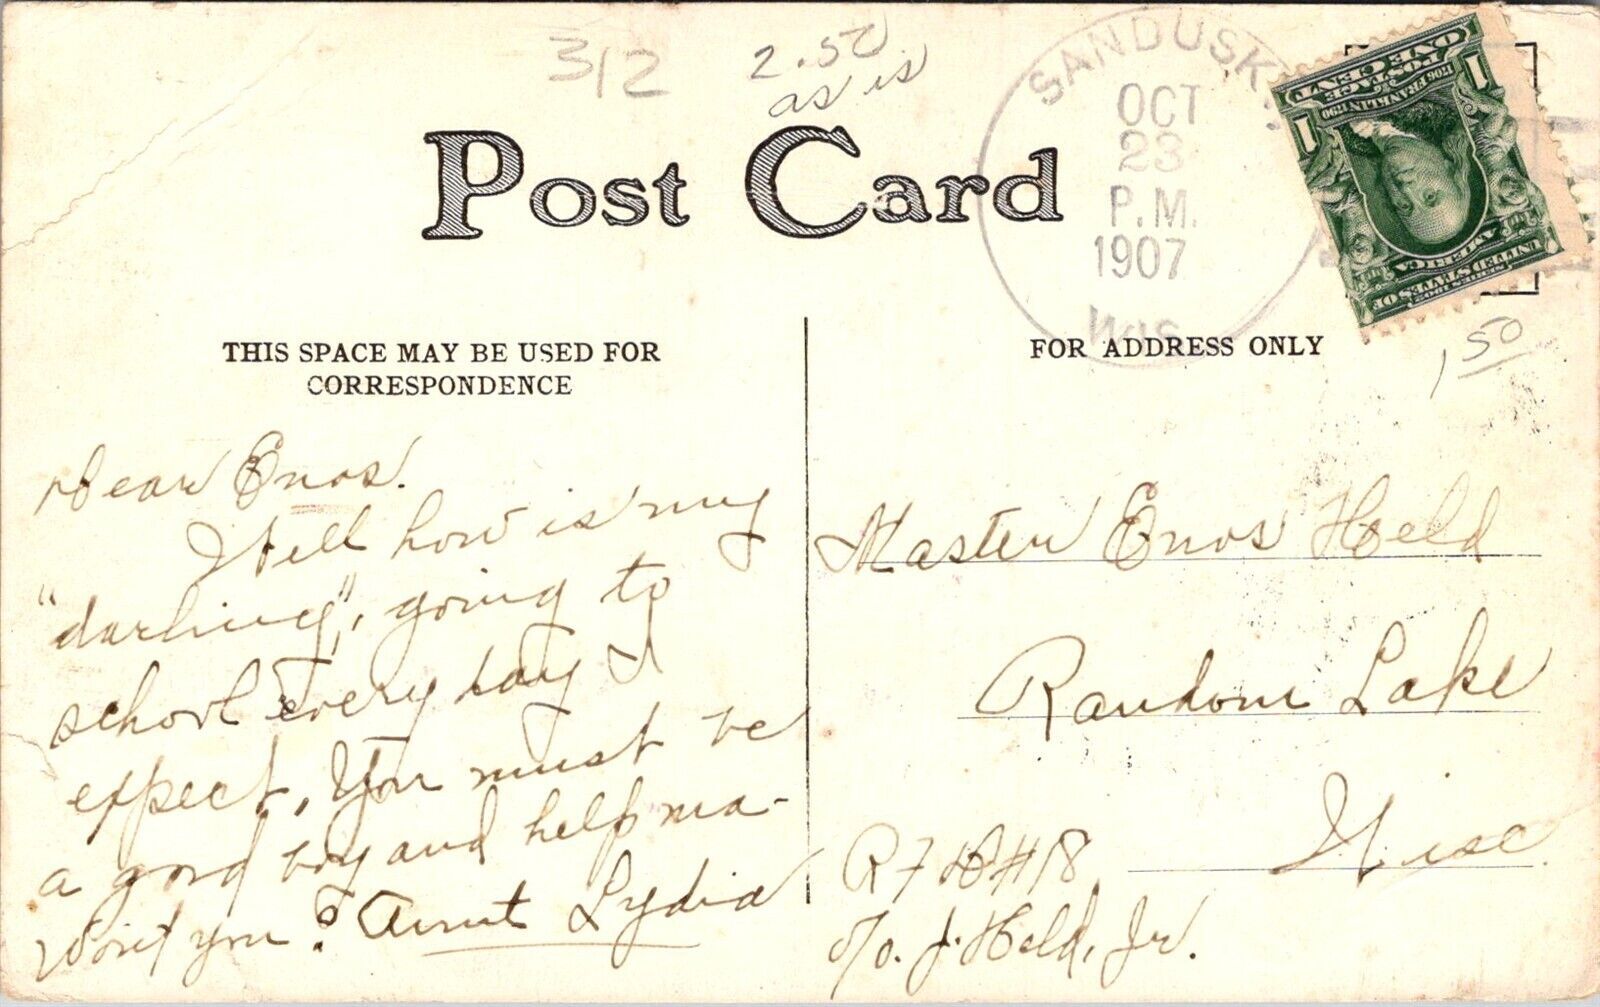 312
2.50
as is
SANDUSKY
OCT
23
P.M.
1907
WIS.
Post Card
ONE CENT
POSTAGE
1706 FRANKLIN 1790
1 1
SERIES 1902
UNITED STATES OF
AMERICA
1.50
THIS SPACE MAY BE USED FOR
CORRESPONDENCE
FOR ADDRESS ONLY
Dear Enos.
Well how is my
"darling", going to
school every day I
expect, You must be
a good boy and help ma-
won't you? Aunt Lydia
Master Enos Held
Random Lake
Wisc.
RFD #18
c/o. J. Held, Jr.